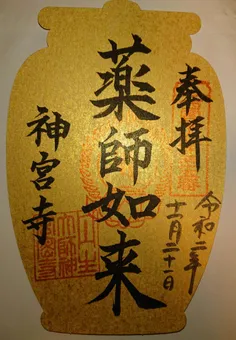 奉拝
令和二年
十二月二十一日
薬師如来
神宮寺